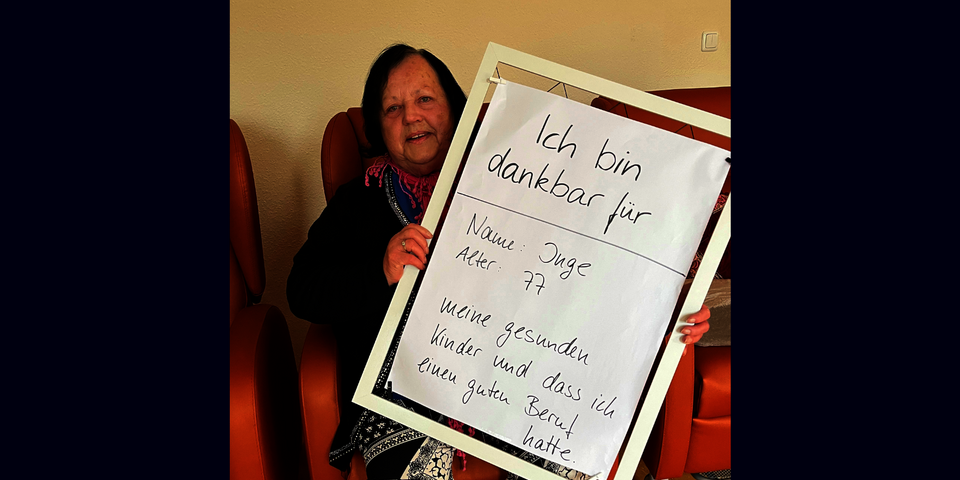 Ich bin
dankbar für
Name: Inge
Alter: 77
meine gesunden
Kinder und dass ich
einen guten Beruf
hatte.